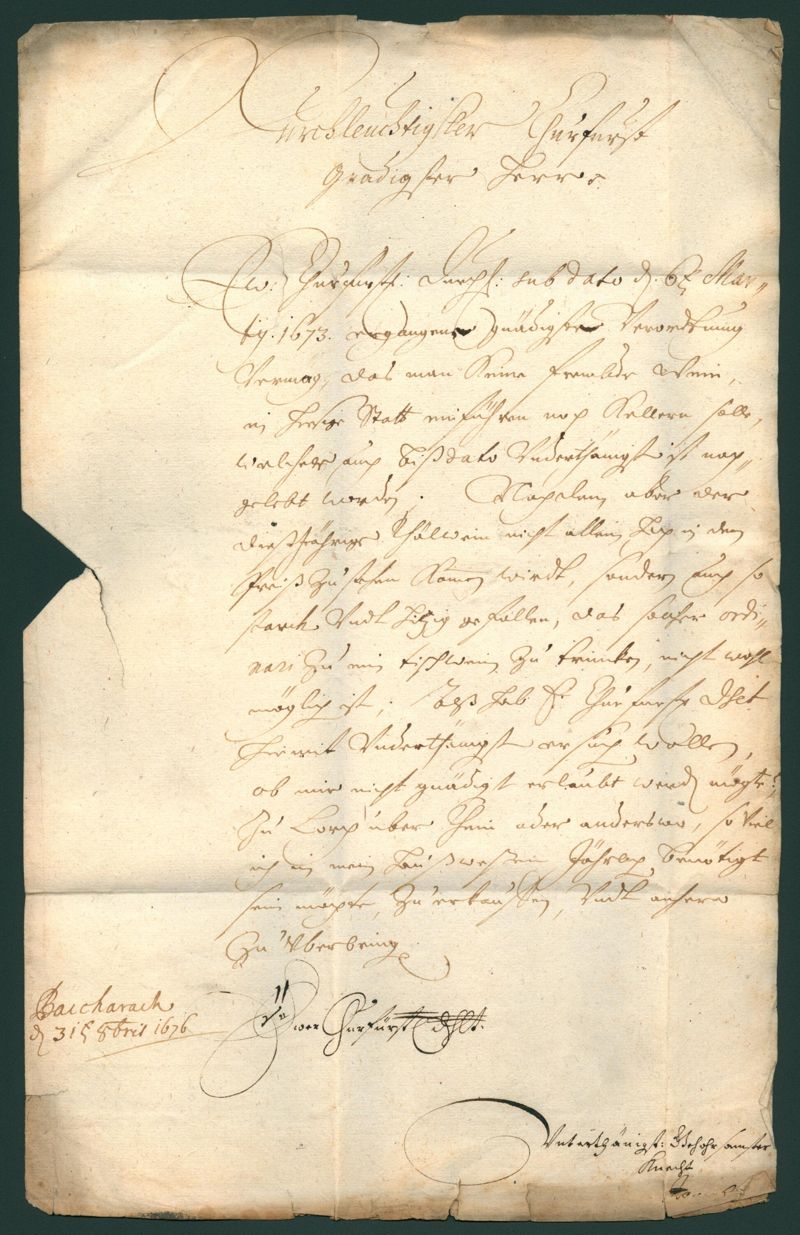 Durchleuchtigster Churfürst
Gnädigster Herr.
Ew: Churfürstl: Durchl: sub dato d. 6t Mar-
tij. 1673. ergangene gnädigste Verordtnung
Vermag, das man Keine frembde Wein
in hiesige Statt einführen noch Kellern solle,
welcher auch biß dato Underthänigst ist nach-
gelebt worden. Nachdem aber der
dießjährige Thalwein nicht allein hoch in dem
Preiß zu stehen Komen wirdt, sondern auch so
starck Undt hitzig gefallen, das solcher ordi-
nari zu ein tischwein zu trincken, nicht wohl
möglich ist; hab Churfürst Dhlt
hiemit Underthänigst ersuchen wollen,
ob mir nicht gnädigst erlaubt werden mögte
zu Lorch über Rhein oder anderswo, so viel
ich in mein haußweßen Jährlich benötigt
sein möchte, zu erkauffen, Undt anhero
zu Uberbring
Baccharach
d 31t 8bris 1676
Ewer Churfürst Dhlt.
Unterthänigst: Gehohrsamster
Knecht